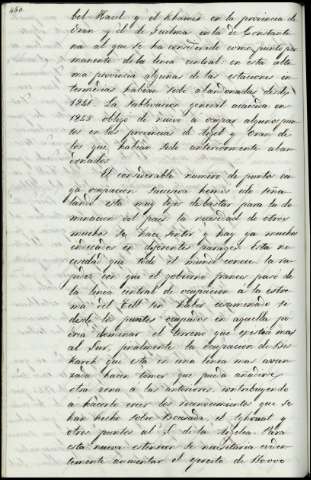 bel Hacil y el Khamis en la provincia de
Oran y el de Guelma en la de Constanti
na al que se ha considerado como punto per
manente de la linea central: en esta ulti
ma provincia algunas de las estaciones in
termedias habian sido abandonadas desde
La sublevacion general acaecida en
obligó de nuevo a ocupar algunos pun
tos en las provincias de Argel y Oran de
los que habian sido anteriormente aban
donados.
El considerable numero de puntos cu
ya ocupacion sucesiva hemos ido seña
lando esta muy lejos de bastar para la do
minacion del pais la necesidad de otros
muchos se hace sentir y hay ya muchos
indicados en diferentes parages. Esta ne
cesidad que todo el mundo conoce la ra
pidez con que el gobierno frances pasó de
la linea central de ocupacion a la estre
ma del Tell sin haber examinado si
desde los puntos ocupados en aquella po
dria dominar el terreno que estaba mas
al Sur, finalmente la ocupacion de Bis
karah que esta en una linea mas avan
zada hacen temer que pueda añadirse
otra zona a las anteriores contribuyendo
a hacerlo creer los reconocimientos que se
han hecho sobre Bousada, el Aghouat y
otros puntos al S. de la Argelia. Para
esta nueva estension se necesitaria eviden
temente aumentar el ejercito de